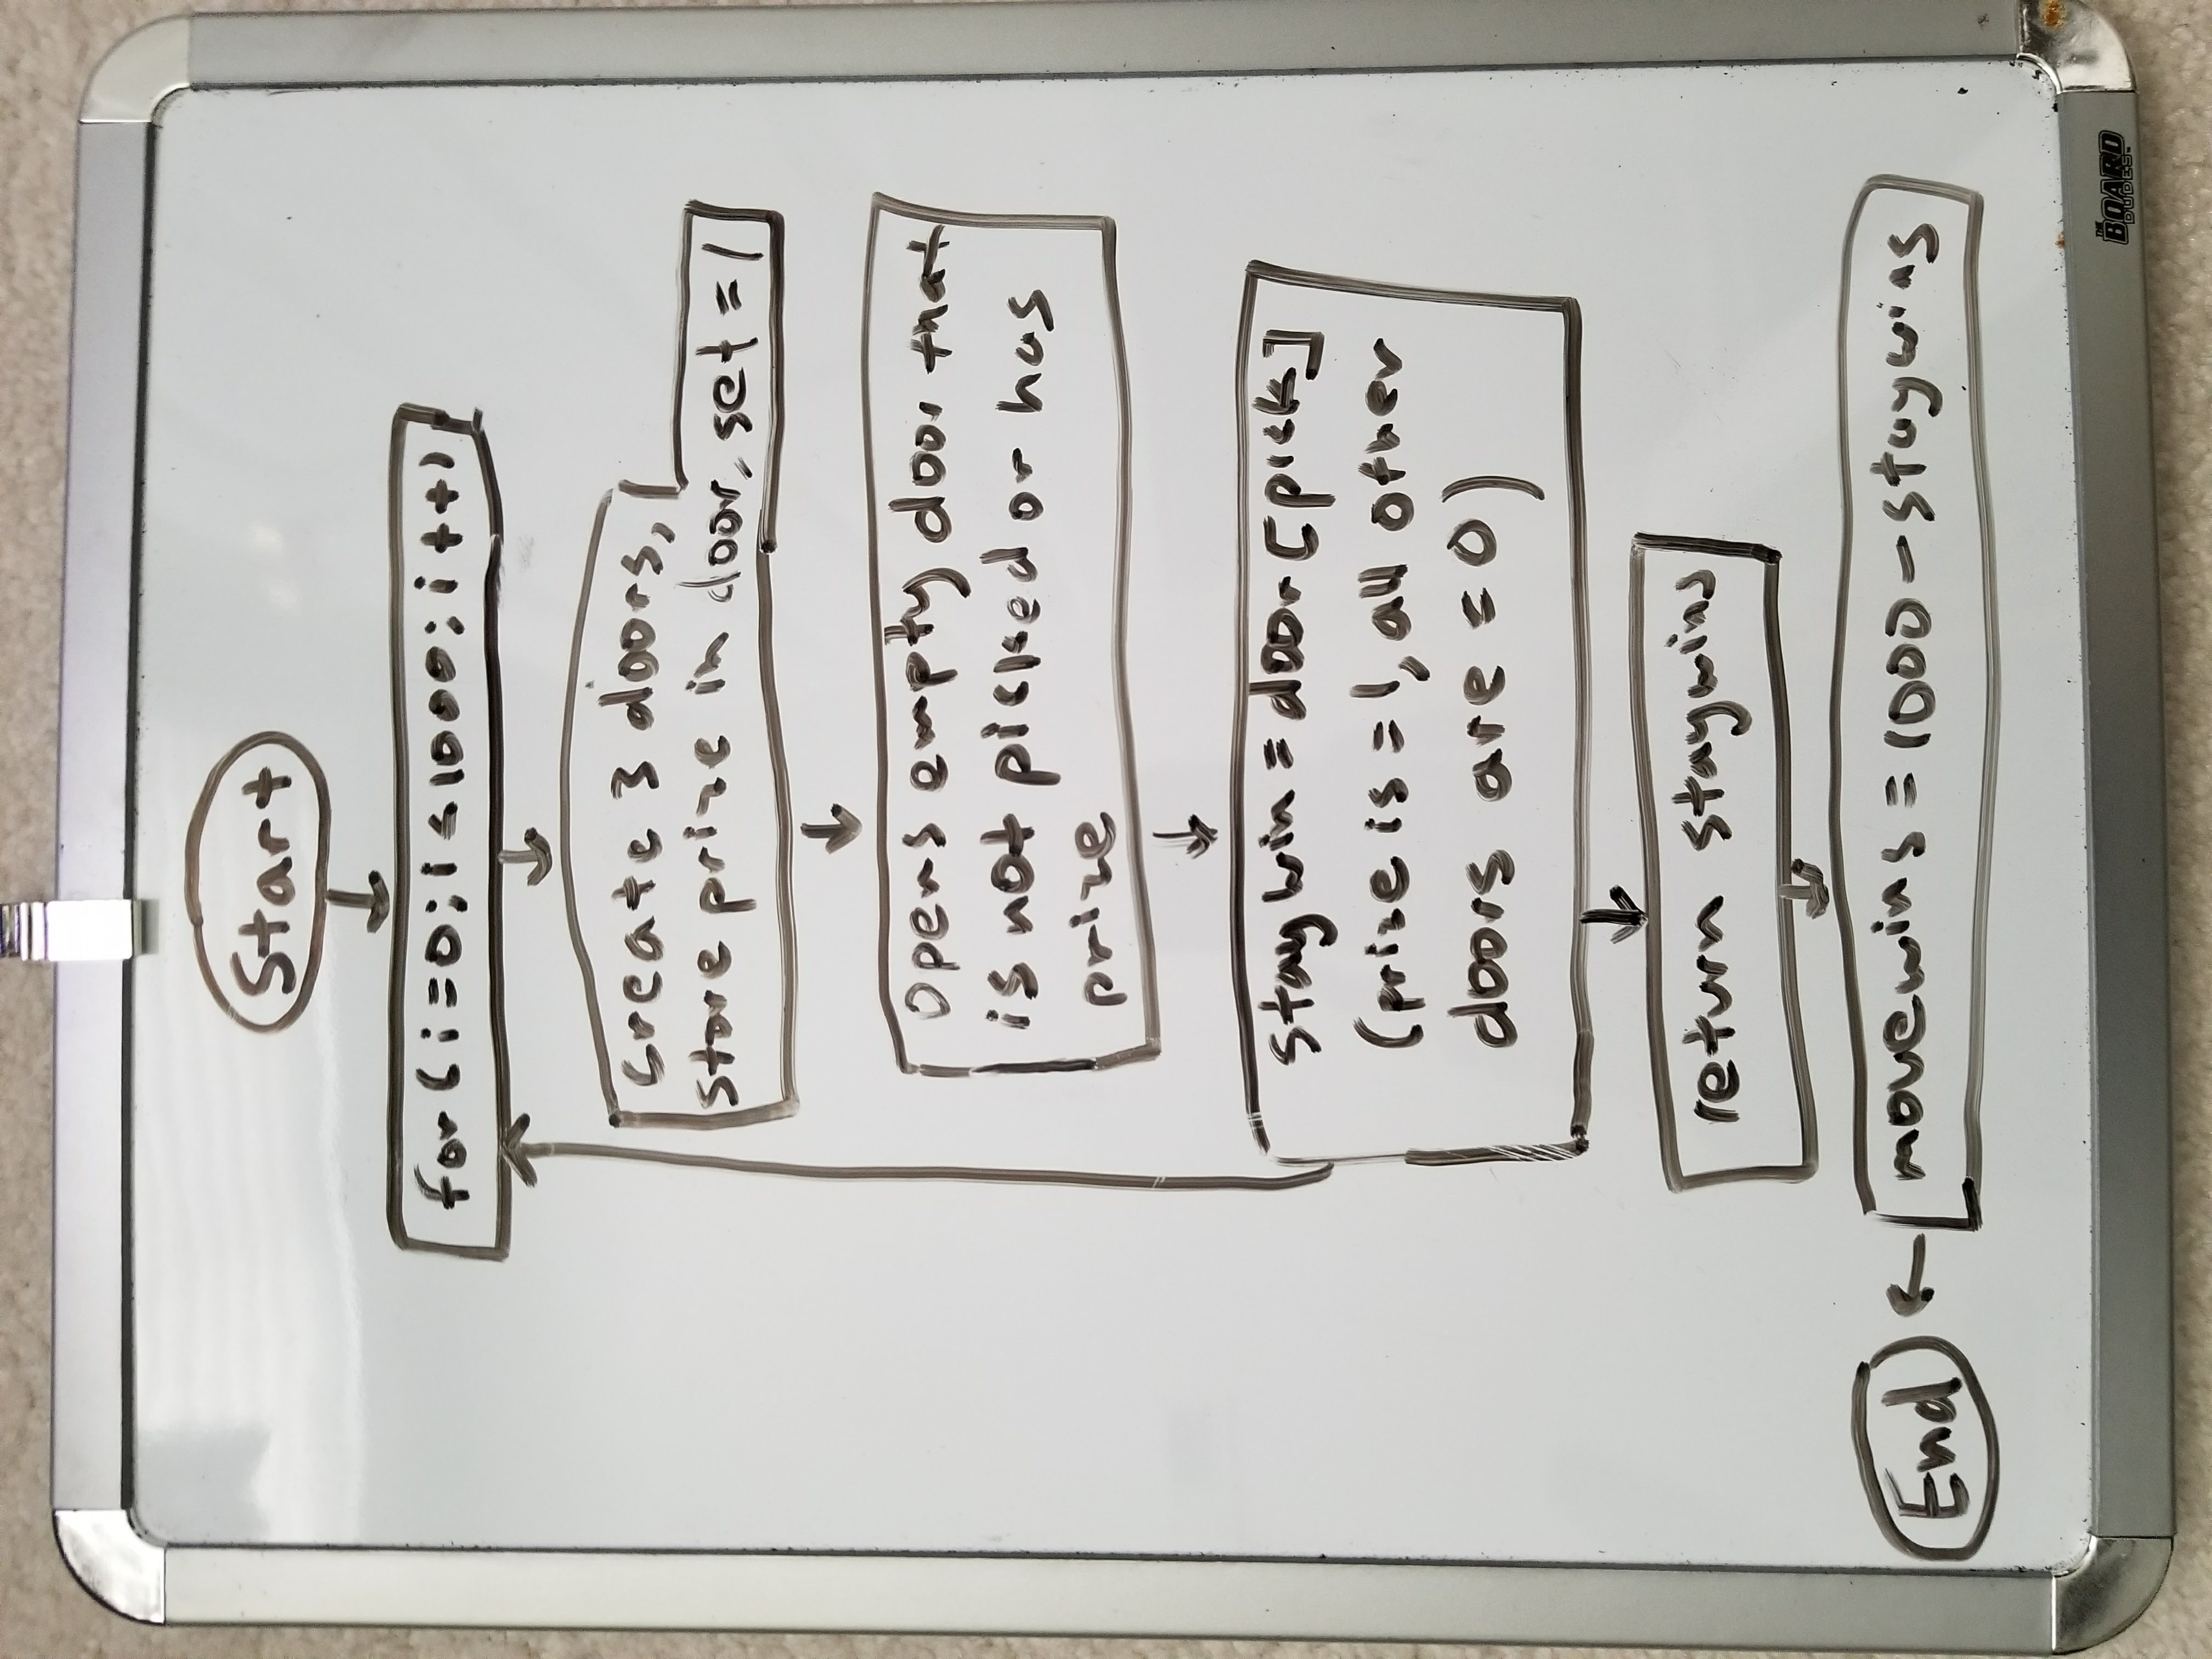 Start
for(i=0;i<1000;i++)
Create 3 doors,
store prize in door, set=1
Opens empty door that
is not picked or has
prize
staywin = door[pick]
(prize is =1, all other
doors are =0)
return staywins
movewins = 1000-staywins
End
THE
BOARD
DUDES